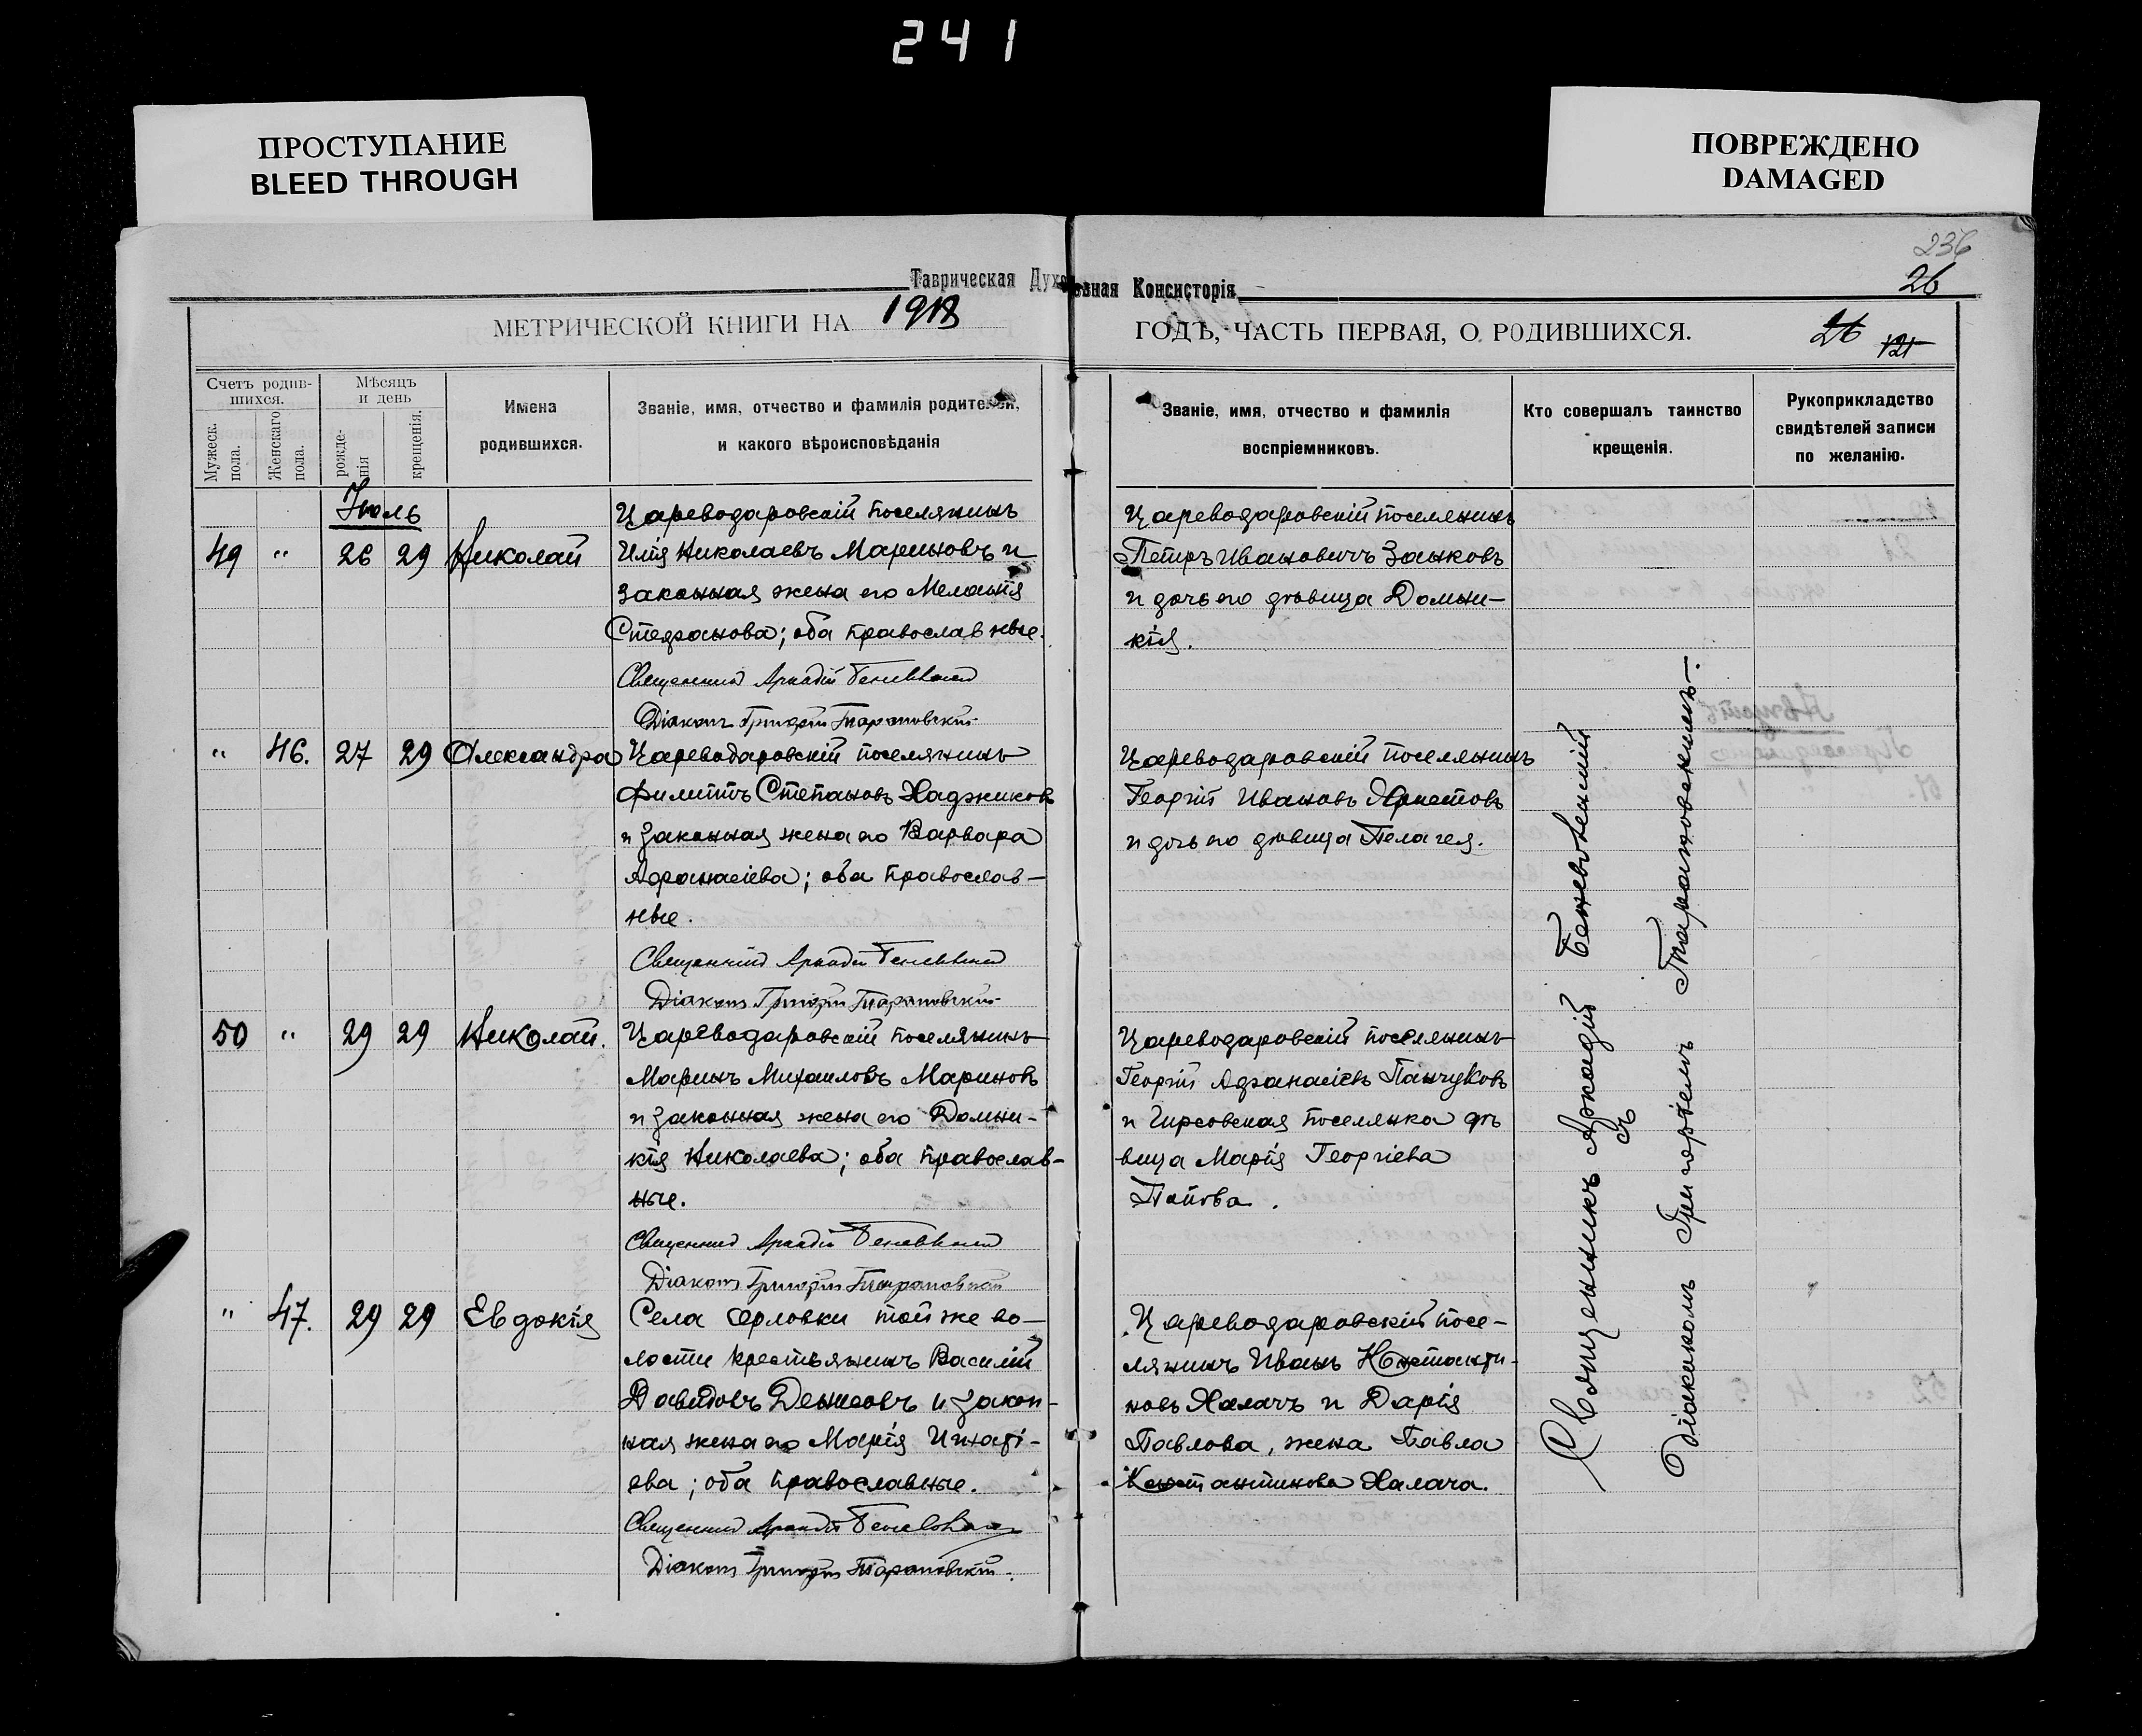 241
ПРОСТУПАНИЕ
BLEED THROUGH
ПОВРЕЖДЕНО
DAMAGED
236
26
Таврическая Духовная Консисторія
МЕТРИЧЕСКОЙ КНИГИ НА 1918 ГОДЪ, ЧАСТЬ ПЕРВАЯ, О РОДИВШИХСЯ.
26
121
Счетъ родив-
шихся.
Мужеск.
пола.
Женскаго
пола.
Мѣсяцъ
и день
рожде-
нія
крещенія.
Имена
родившихся.
Званіе, имя, отчество и фамилія родителей,
и какого вѣроисповѣданія
Званіе, имя, отчество и фамилія
воспріемниковъ.
Кто совершалъ таинство
крещенія.
Рукоприкладство
свидѣтелей записи
по желанію.
Іюль
49 " 26 29 Николай
Цареводаровскій поселянинъ
Илія Николаевъ Мариновъ и
законная жена его Меланія
Стефанова; оба православные.
Священник Аркадій
Діаконъ Григорій Тарановскій
Цареводаровскій поселянинъ
Петръ Ивановичъ Занковъ
и дочь его дѣвица Домни-
кія.
" 46. 27 29 Александра
Цареводаровскій поселянинъ
Филиппъ Степановъ Хаджиковъ
и законная жена его Варвара
Афанасіева; оба православ-
ные.
Священник Аркадій
Діаконъ Григорій Тарановскій
Цареводаровскій поселянинъ
Георгій Ивановъ
и дочь его дѣвица Пелагея.
50 " 29 29 Николай.
Цареводаровскій поселянинъ
Маринъ Михаиловъ Мариновъ
и законная жена его Домни-
кія Николаева; оба православ-
ные.
Священник Аркадій
Діаконъ Григорій Тарановскій
Цареводаровскій поселянинъ
Георгій Афанасіевъ Панчуковъ
и Гирсовская поселянка дѣ
вица Марія Георгіева
Папова.
" 47. 29 29 Евдокія
Села Орловки той же во-
лости крестьянинъ Василій
Давидовъ Денисовъ и закон-
ная жена его Марія Игнаті-
ева; оба православные.
Священник Аркадій
Діаконъ Григорій Тарановскій.
Цареводаровскій посе-
лянинъ Иванъ Константи-
новъ Халачъ и Дарія
Павлова, жена Павла
Константинова Халача.
Священникъ Аркадій
съ
діакономъ Григоріемъ Тарановскимъ.